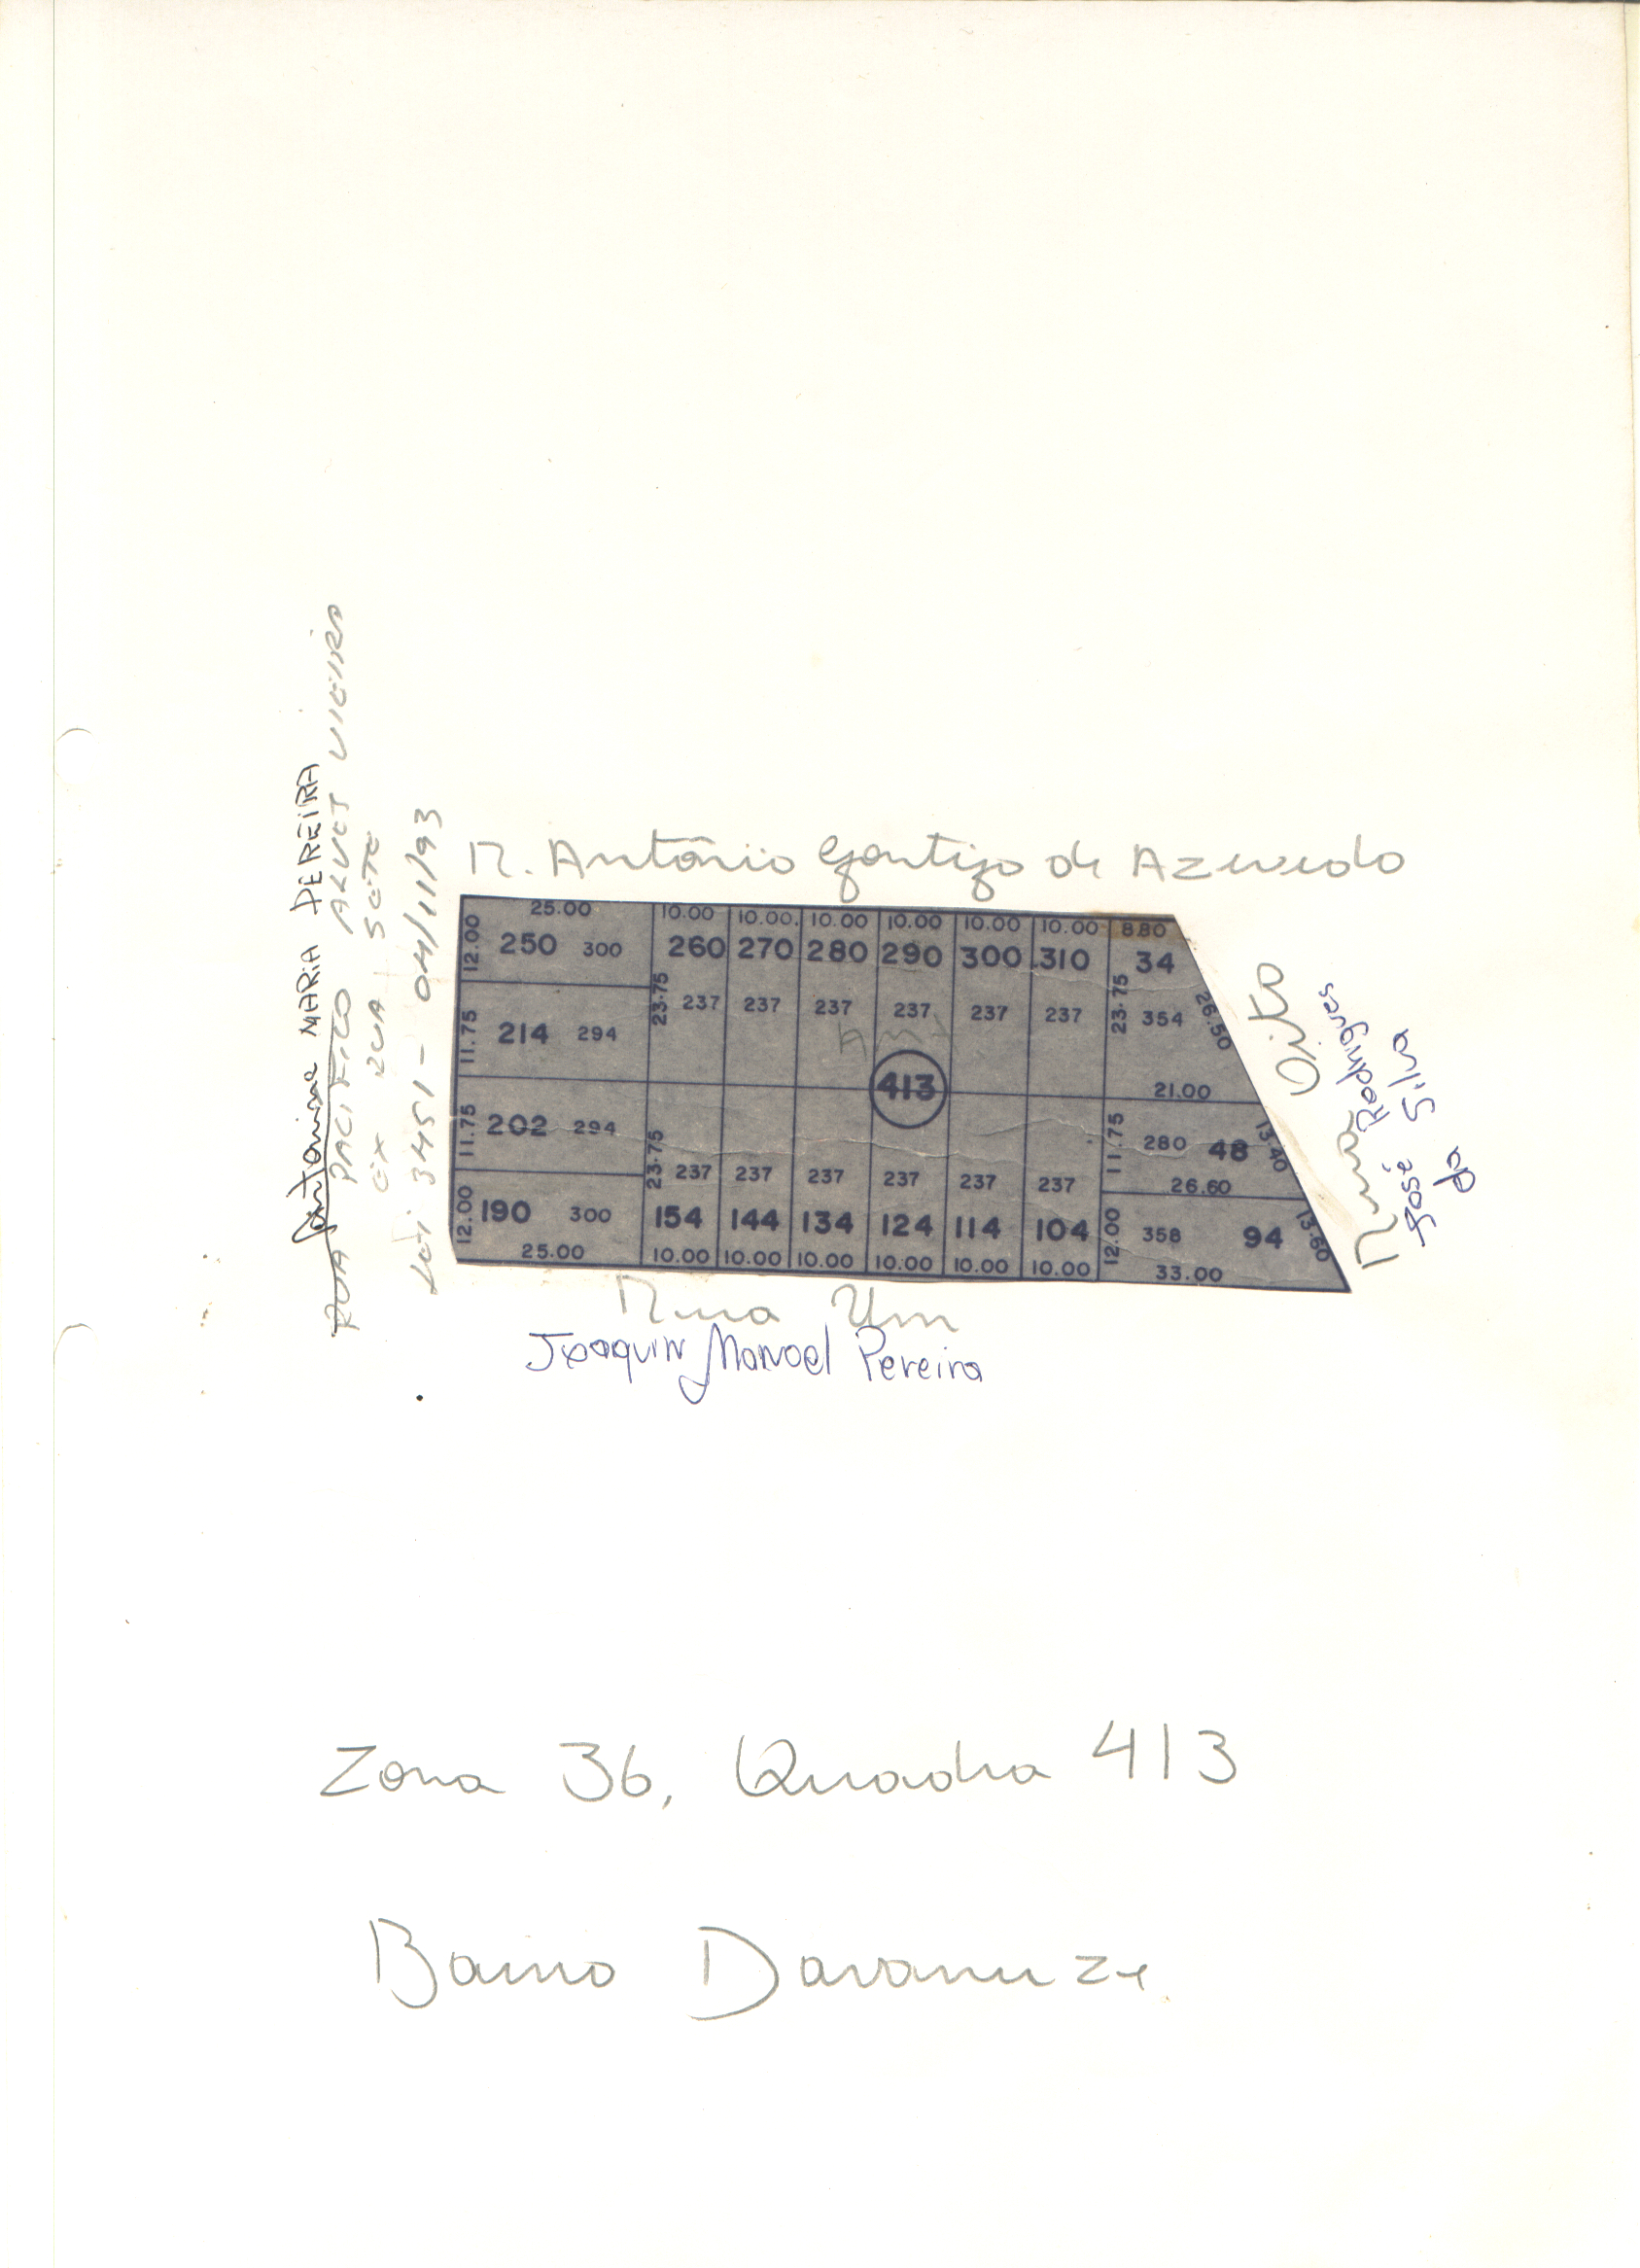 R. Antônio Gontijo de Azevedo
Antonina MARIA PEREIRA
RUA PACIFICO ALVES VIEIRA
EX RUA SETE
Lei 3451 - 04/11/93
25.00 10.00 10.00 10.00 10.00 10.00 10.00 8.80
12.00 250 300 260 270 280 290 300 310 34
23.75 237 237 237 237 237 237 23.75 354 26.50
11.75 214 294
413
21.00
11.75 202 294 11.75 280 48 13.40
23.75 237 237 237 237 237 237 26.60
12.00 190 300 154 144 134 124 114 104 12.00 358 94 13.60
25.00 10.00 10.00 10.00 10.00 10.00 10.00 33.00
Rua Oito
José Rodrigues
da Silva
Rua Um
Joaquin Manoel Pereira
Zona 36, Quadra 413
Bairro Davanuze